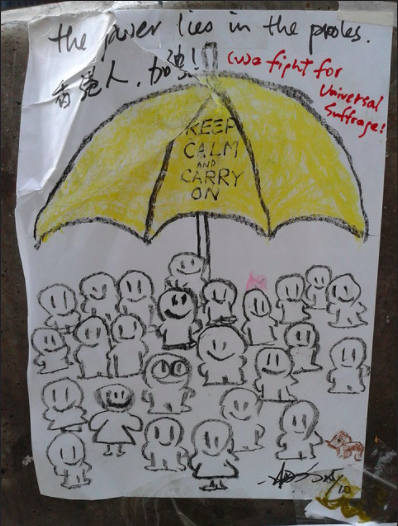 the power lies in the proles.
香港人，加油！
(we fight for
Universal
Suffrage!
KEEP
CALM
AND
CARRY
ON